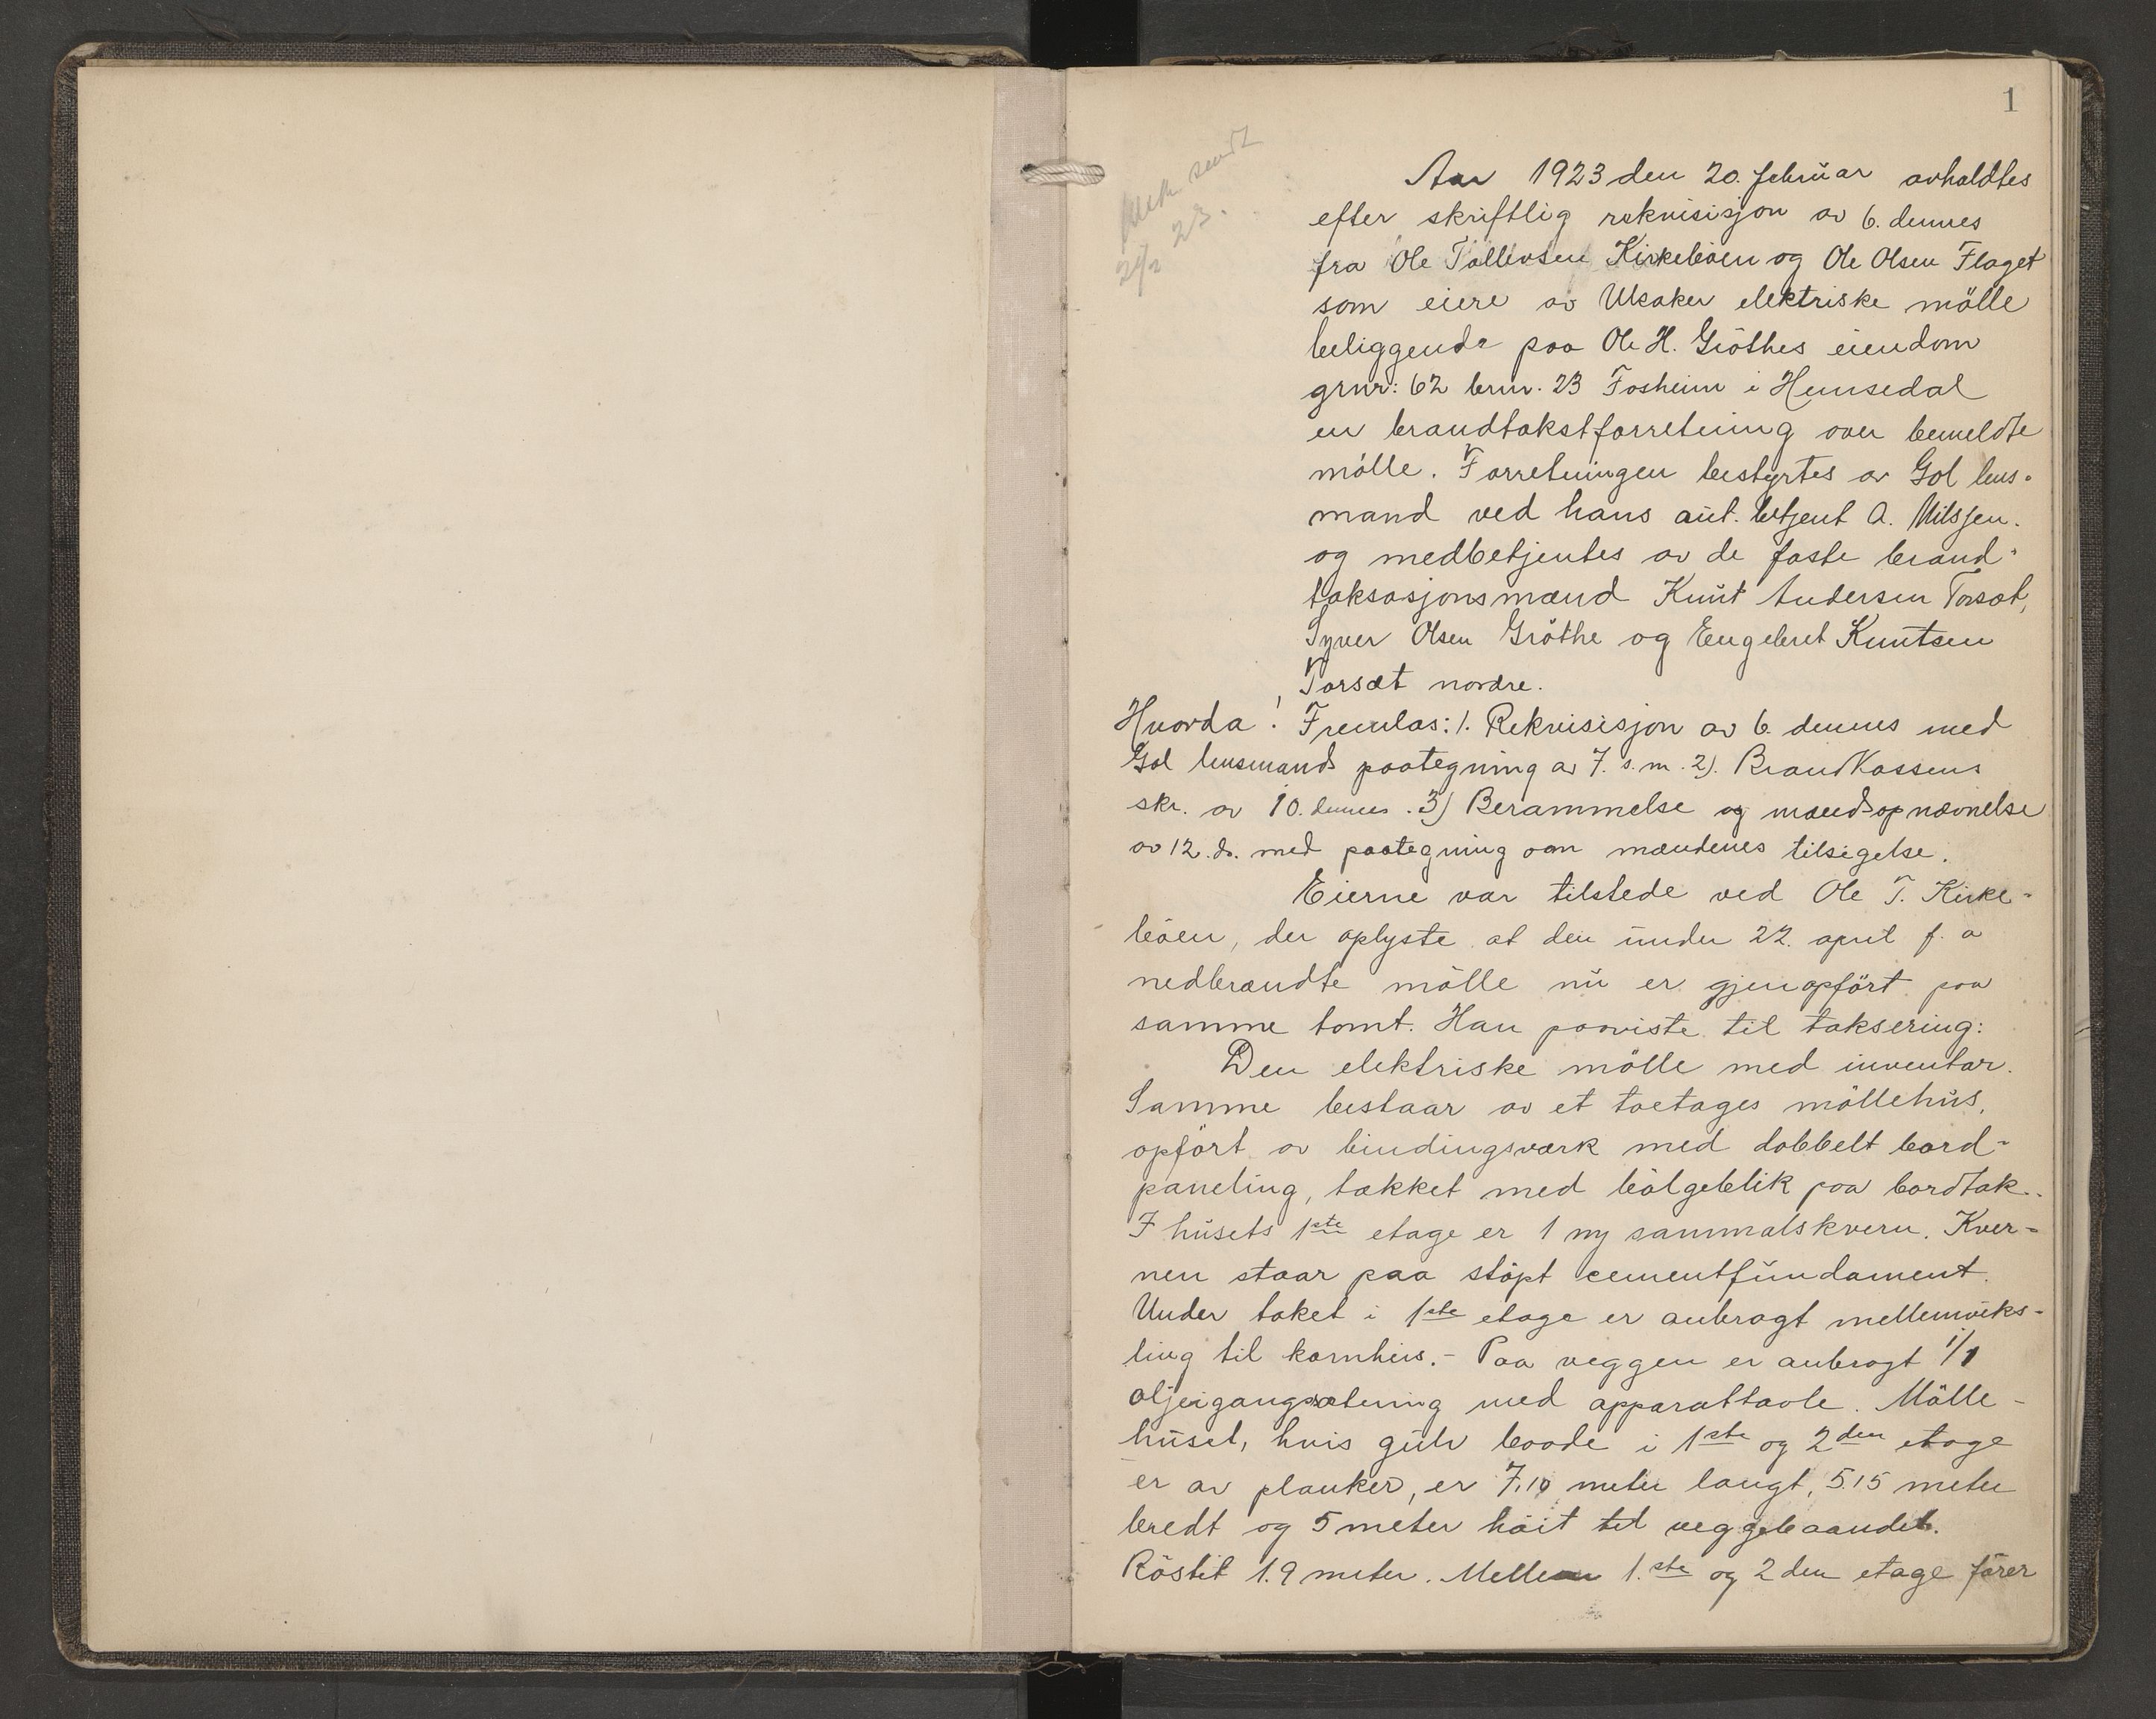 1
sendt
24/2 23.
Aar 1923 den 20. februar avholdtes
efter skriftlig rekvisisjon av 6. dennes
fra Ole Tollevsen Kirkeböen og Ole Olsen Flaget
som eiere av Ulsaker elektriske mölle
beliggende paa Ole H. Gröthes eiendom
grnr: 62 brnr. 23 Fosheim i Hemsedal
en brandtakstforretning over bemeldte
mölle. Forretningen bestyrtes av Gol lens-
mand ved hans aut. betjent A. Nilssen.
og medbetjentes av de faste brand-
taksasjonsmænd Knut Andersen Torsæt,
Syver Olsen Gröthe og Engebret Knutsen
Torsæt nordre.
Hvorda! Fremlas: 1. Rekvisisjon av 6. dennes med
Gol lensmands paategning av 7. s.m. 2). Brandkassens
skr. av 10. dennes. 3) Berammelse og mænds-opnævnelse
av 12. ds. med paategning om mændenes tilsigelse.
Eierne var tilstede ved Ole T. Kirke-
böen, der oplyste at den under 22. april f. a
nedbrændte mölle nu er gjenopfört paa
samme tomt. Han paaviste til taksering:
Den elektriske mölle med inventar.
Samme bestaar av et toetages möllehus,
opfört av bindingsværk med dobbelt bord-
paneling, tækket med bölgeblik paa bordtak.
I husets 1ste etage er 1 ny sammalskvern. Kver-
nen staar paa stöpt cementfundament.
Under taket i 1ste etage er anbragt mellemveks-
ling til kornheis. - Paa veggen er anbragt 1/1
oljeigangsætning med apparattavle. Mölle-
huset, hvis gulv baade i 1ste og 2den etage
er av planker, er 7,10 meter langt, 5.15 meter
bredt og 5 meter höit til veggebaandet.
Röstet 1.9 meter. Mellem 1.ste og 2den etage förer